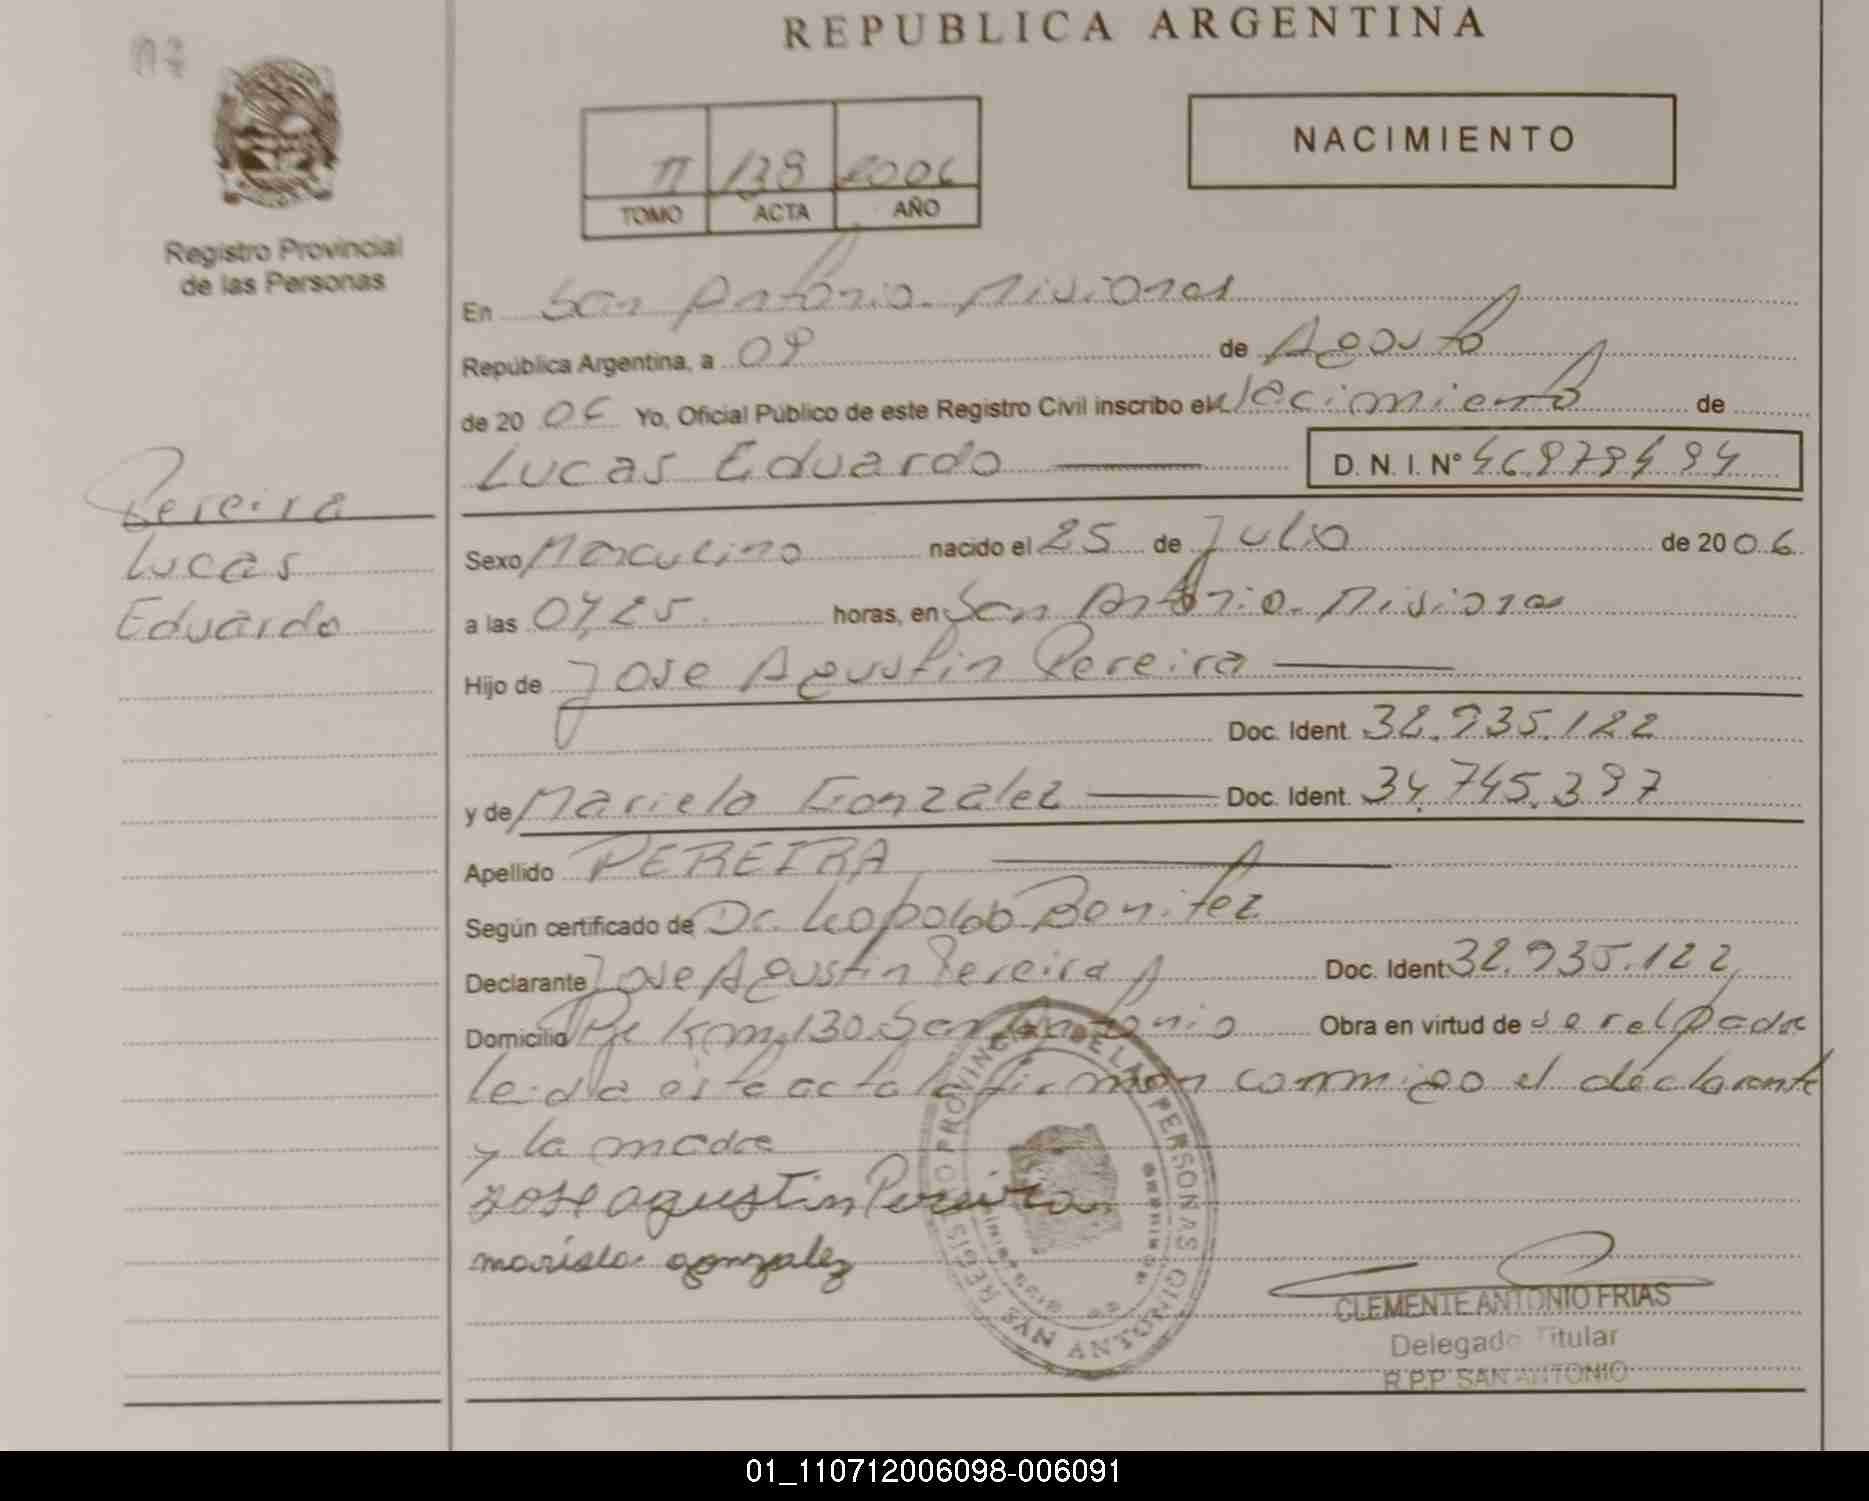 REPUBLICA ARGENTINA
Registro Provincial
de las Personas
II 138 2006
TOMO ACTA AÑO
NACIMIENTO
En San Antonio. Misiones
República Argentina, a 09 de Agosto
de 2006 Yo, Oficial Público de este Registro Civil inscribo el Nacimiento de
Lucas Eduardo D. N. I. Nº
Pereira
Lucas
Eduardo
Sexo Masculino nacido el 25 de Julio de 2006
a las horas, en San Antonio. Misiones
Hijo de Jose Agustin Pereira
Doc. Ident. 32.935.122
y de Mariela Gonzalez Doc. Ident. 34.745.397
Apellido PEREIRA
Según certificado de Dr. Leopoldo Benitez
Declarante Jose Agustin Pereira Doc. Ident 32.935.122
Domicilio Pje Km 130 San Antonio Obra en virtud de ser el padre
Leida este acta firman conmigo el declarante
y la madre
Jose agustin Pereira
mariela gonzalez
REGISTRO PROVINCIAL DE LAS PERSONAS
SAN ANTONIO
CLEMENTE ANTONIO FRIAS
Delegado Titular
R.P.P. SAN ANTONIO
01_110712006098-006091